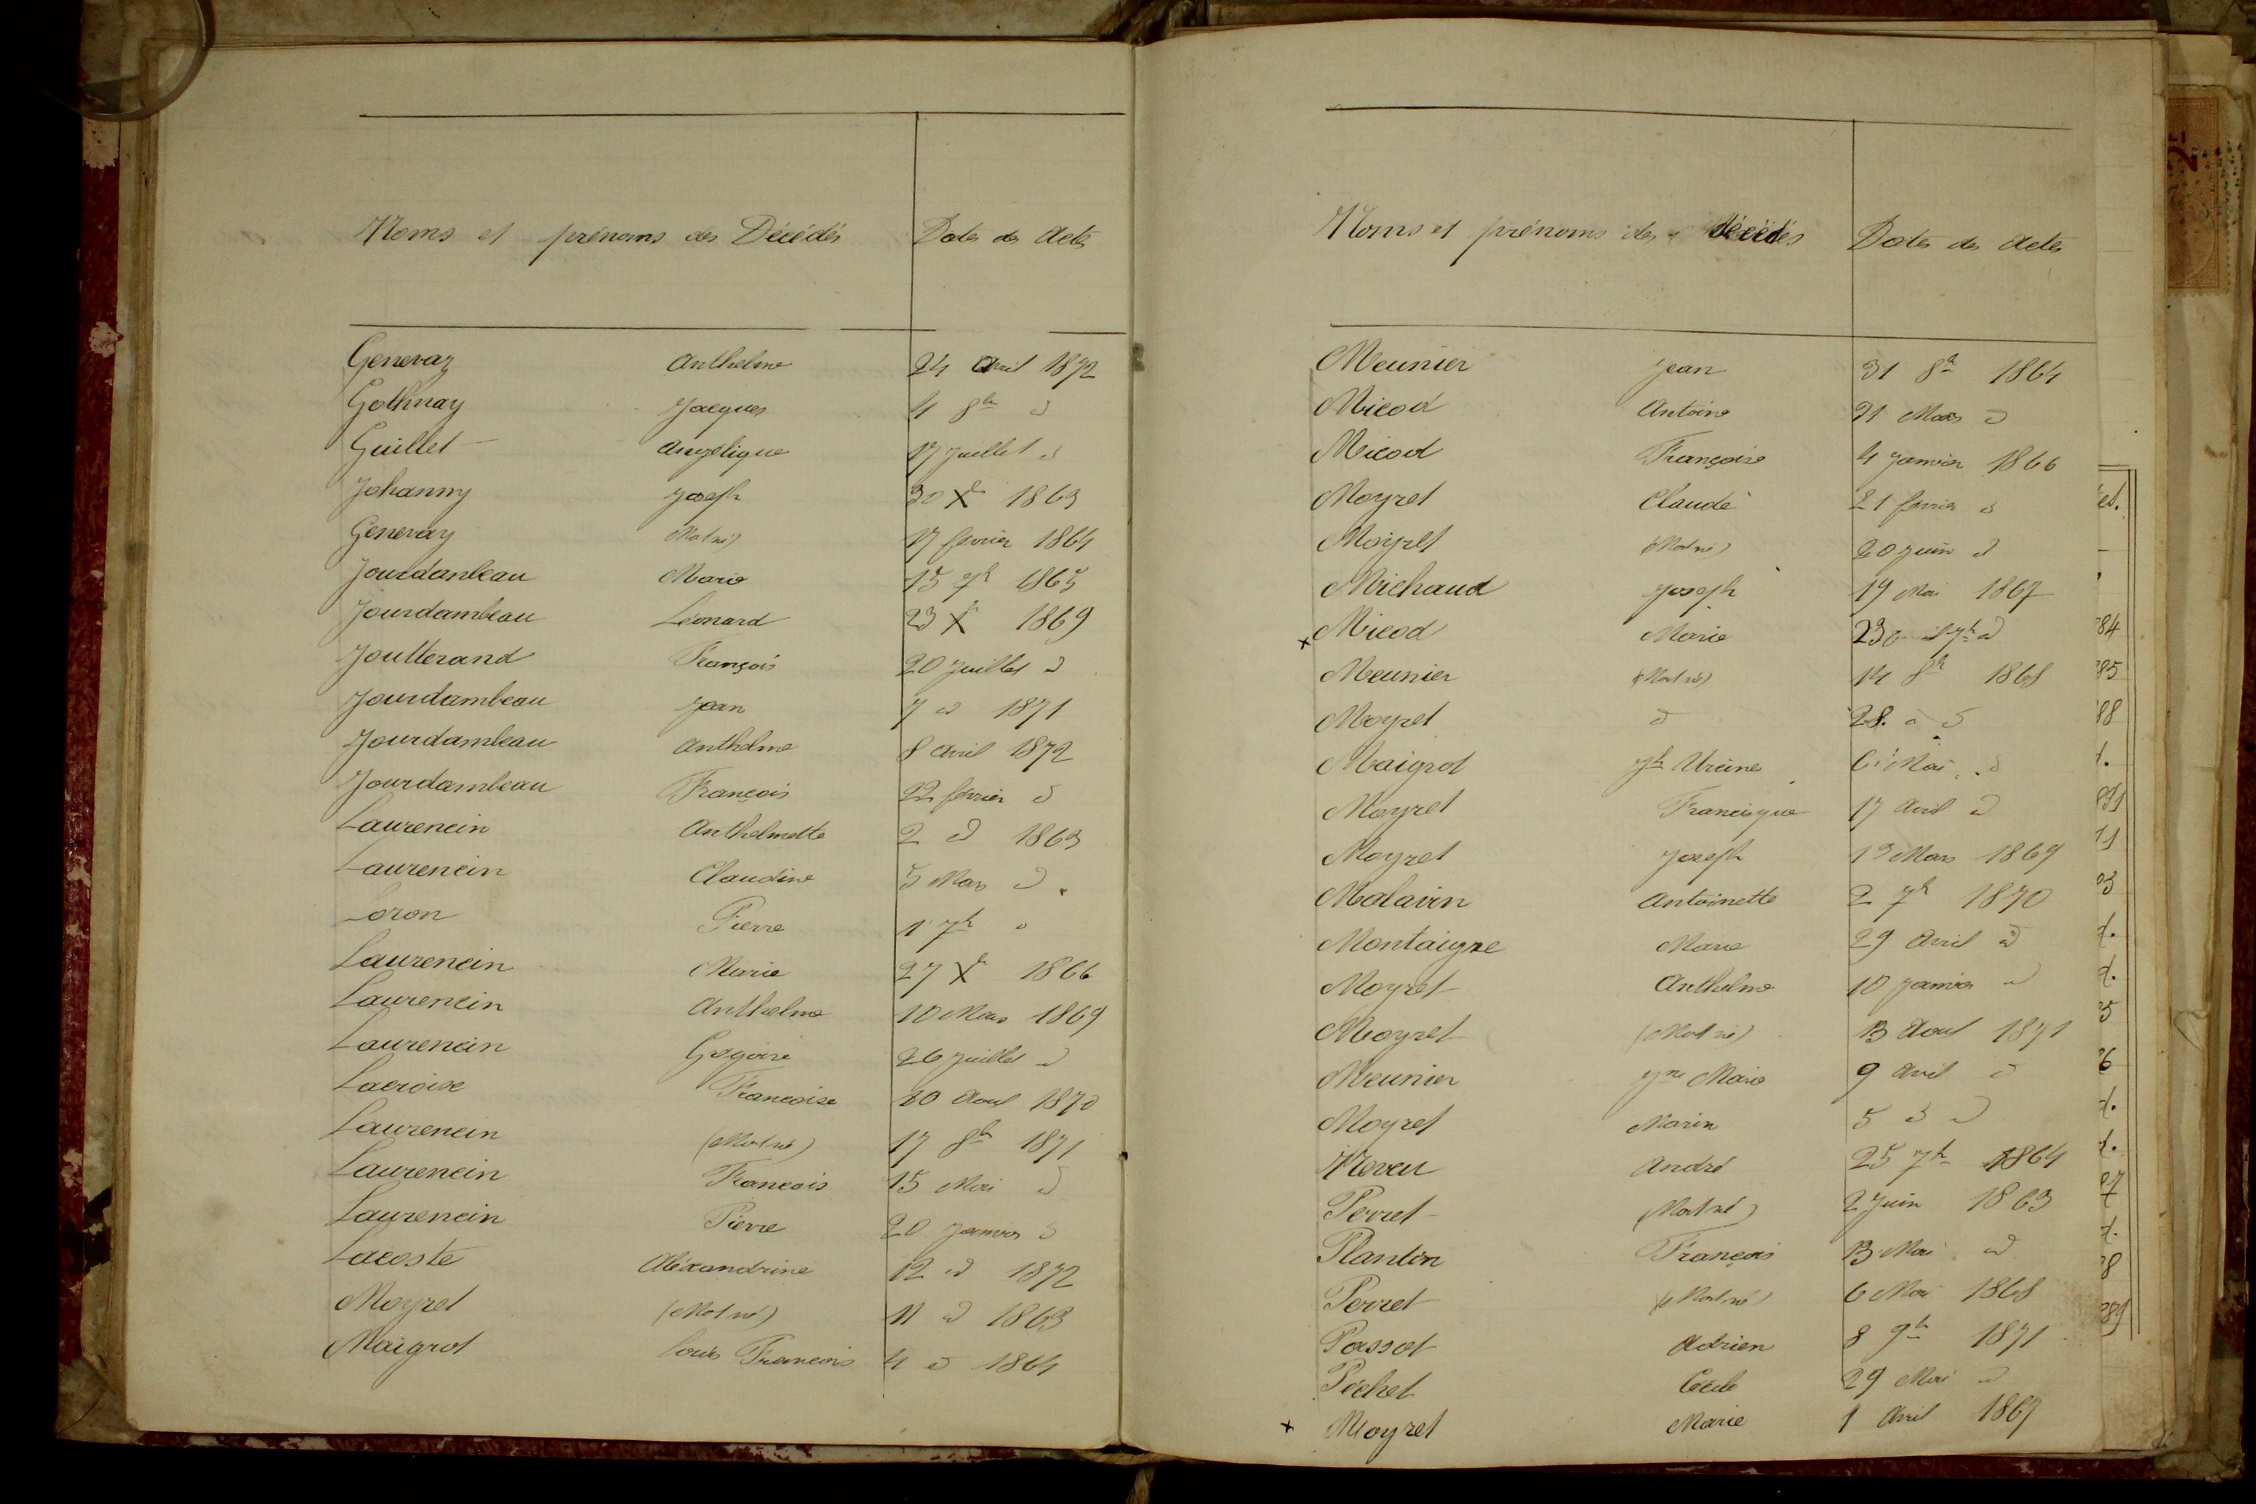 Noms et prénoms des Décédés Dates des Actes
Genevaz Anthelme 24 Avril 1872
Gothnay Jacques 4 8bre d
Guillet Angélique 17 Juillet d
Johanny Joseph 30 Xbre 1863
Genevay (Mort né) 17 février 1864
Jourdanbeau Marie 15 7h 1865
Jourdambeau Léonard 23 X 1869
Joutterand François 20 Juillet d
Jourdambeau Jean 7 d 1871
Jourdambeau Anthelme 8 Avril 1872
Jourdambeau François 22 février d
Laurencin Anthelmette 2 d 1863
Laurencin Claudine 5 Mars d
Loron Pierre 1 7h d
Laurencin Marie 27 X 1866
Laurencin Anthelme 10 Mars 1869
Laurencin Grégoire 26 Juillet d
Lacroise Francoise 10 Aout 1870
Laurencin (Mort né) 17 8h 1871
Laurencin Francois 15 Mai d
Laurencin Pierre 20 Janvier d
Lacoste Aléxandrine 12 d 1872
Moyret (Mort né) 11 d 1863
Maigrot Louis Francois 4 d 1864
Noms et prénoms des Décédés Dates des Actes
Meunier Jean 31 8h 1864
Micod Antoine 21 Mars d
Micod Françoise 4 Janvier 1866
Moyret Claude 21 février d
Moyret (Mort né) 20 Juin d
Michaud Joseph 19 Mai 1867
x Micod Marie 7h d
Meunier (Mort né) 14 8h 1868
Moyret d 28 d d
Maigrot Jh Ursine 6 Mai d
Moyret Francisque 17 Avril d
Moyret Joseph 13 Mars 1869
Malavin Antoinette 2 7h 1870
Montaigne Marie 29 Avril d
Moyret Anthelme 10 Janvier d
Moyret (Mort né) 13 Aout 1871
Meunier Jne Marie 9 Avril d
Moyret Marin 5 d d
Neveu André 25 7h 1864
Perret (Mort né) 2 Juin 1863
Plantin François 13 Mai d
Perret (Mort né) 6 Mai 1868
Passot Adrien 8 9h 1871
Péchet Cécile 29 Mai d
x Moyret Marie 1 Avril 1867